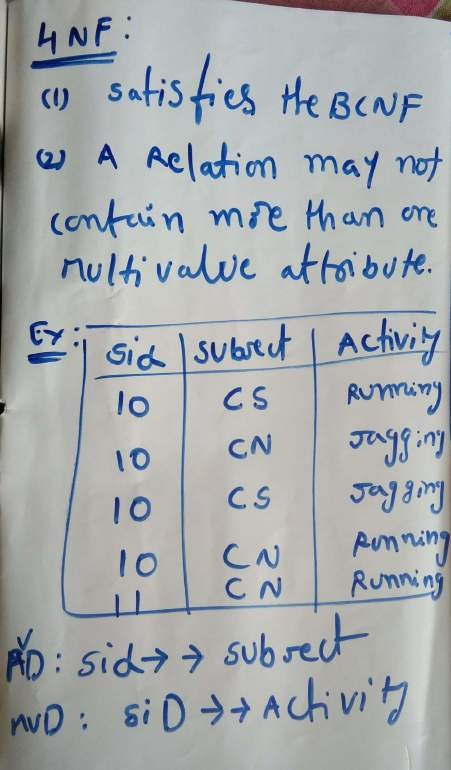 4NF:
(1) Satisfies the BCNF
(2) A Relation may not
contain more than one
multivalue attribute.
Ex:
Sid Subsect Activity
10 CS Running
10 CN Jagging
10 CS Jagging
10 CN Running
11 CN Running
D: Sid→→ Subsect
MVD: SiD →→ Activity